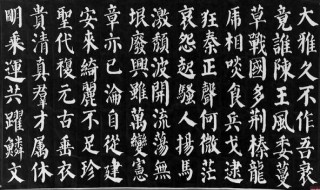 大雅久不作吾衰
竟誰陳王風委蔓
草戰國多荊榛龍
虎相啖食兵戈逮
狂秦正聲何微茫
哀怨起騷人揚馬
激頹波開流蕩無
垠廢興雖萬變憲
章亦已淪自從建
安來綺麗不足珍
聖代複元古垂衣
貴清真群才属休
明乘運共躍鱗文